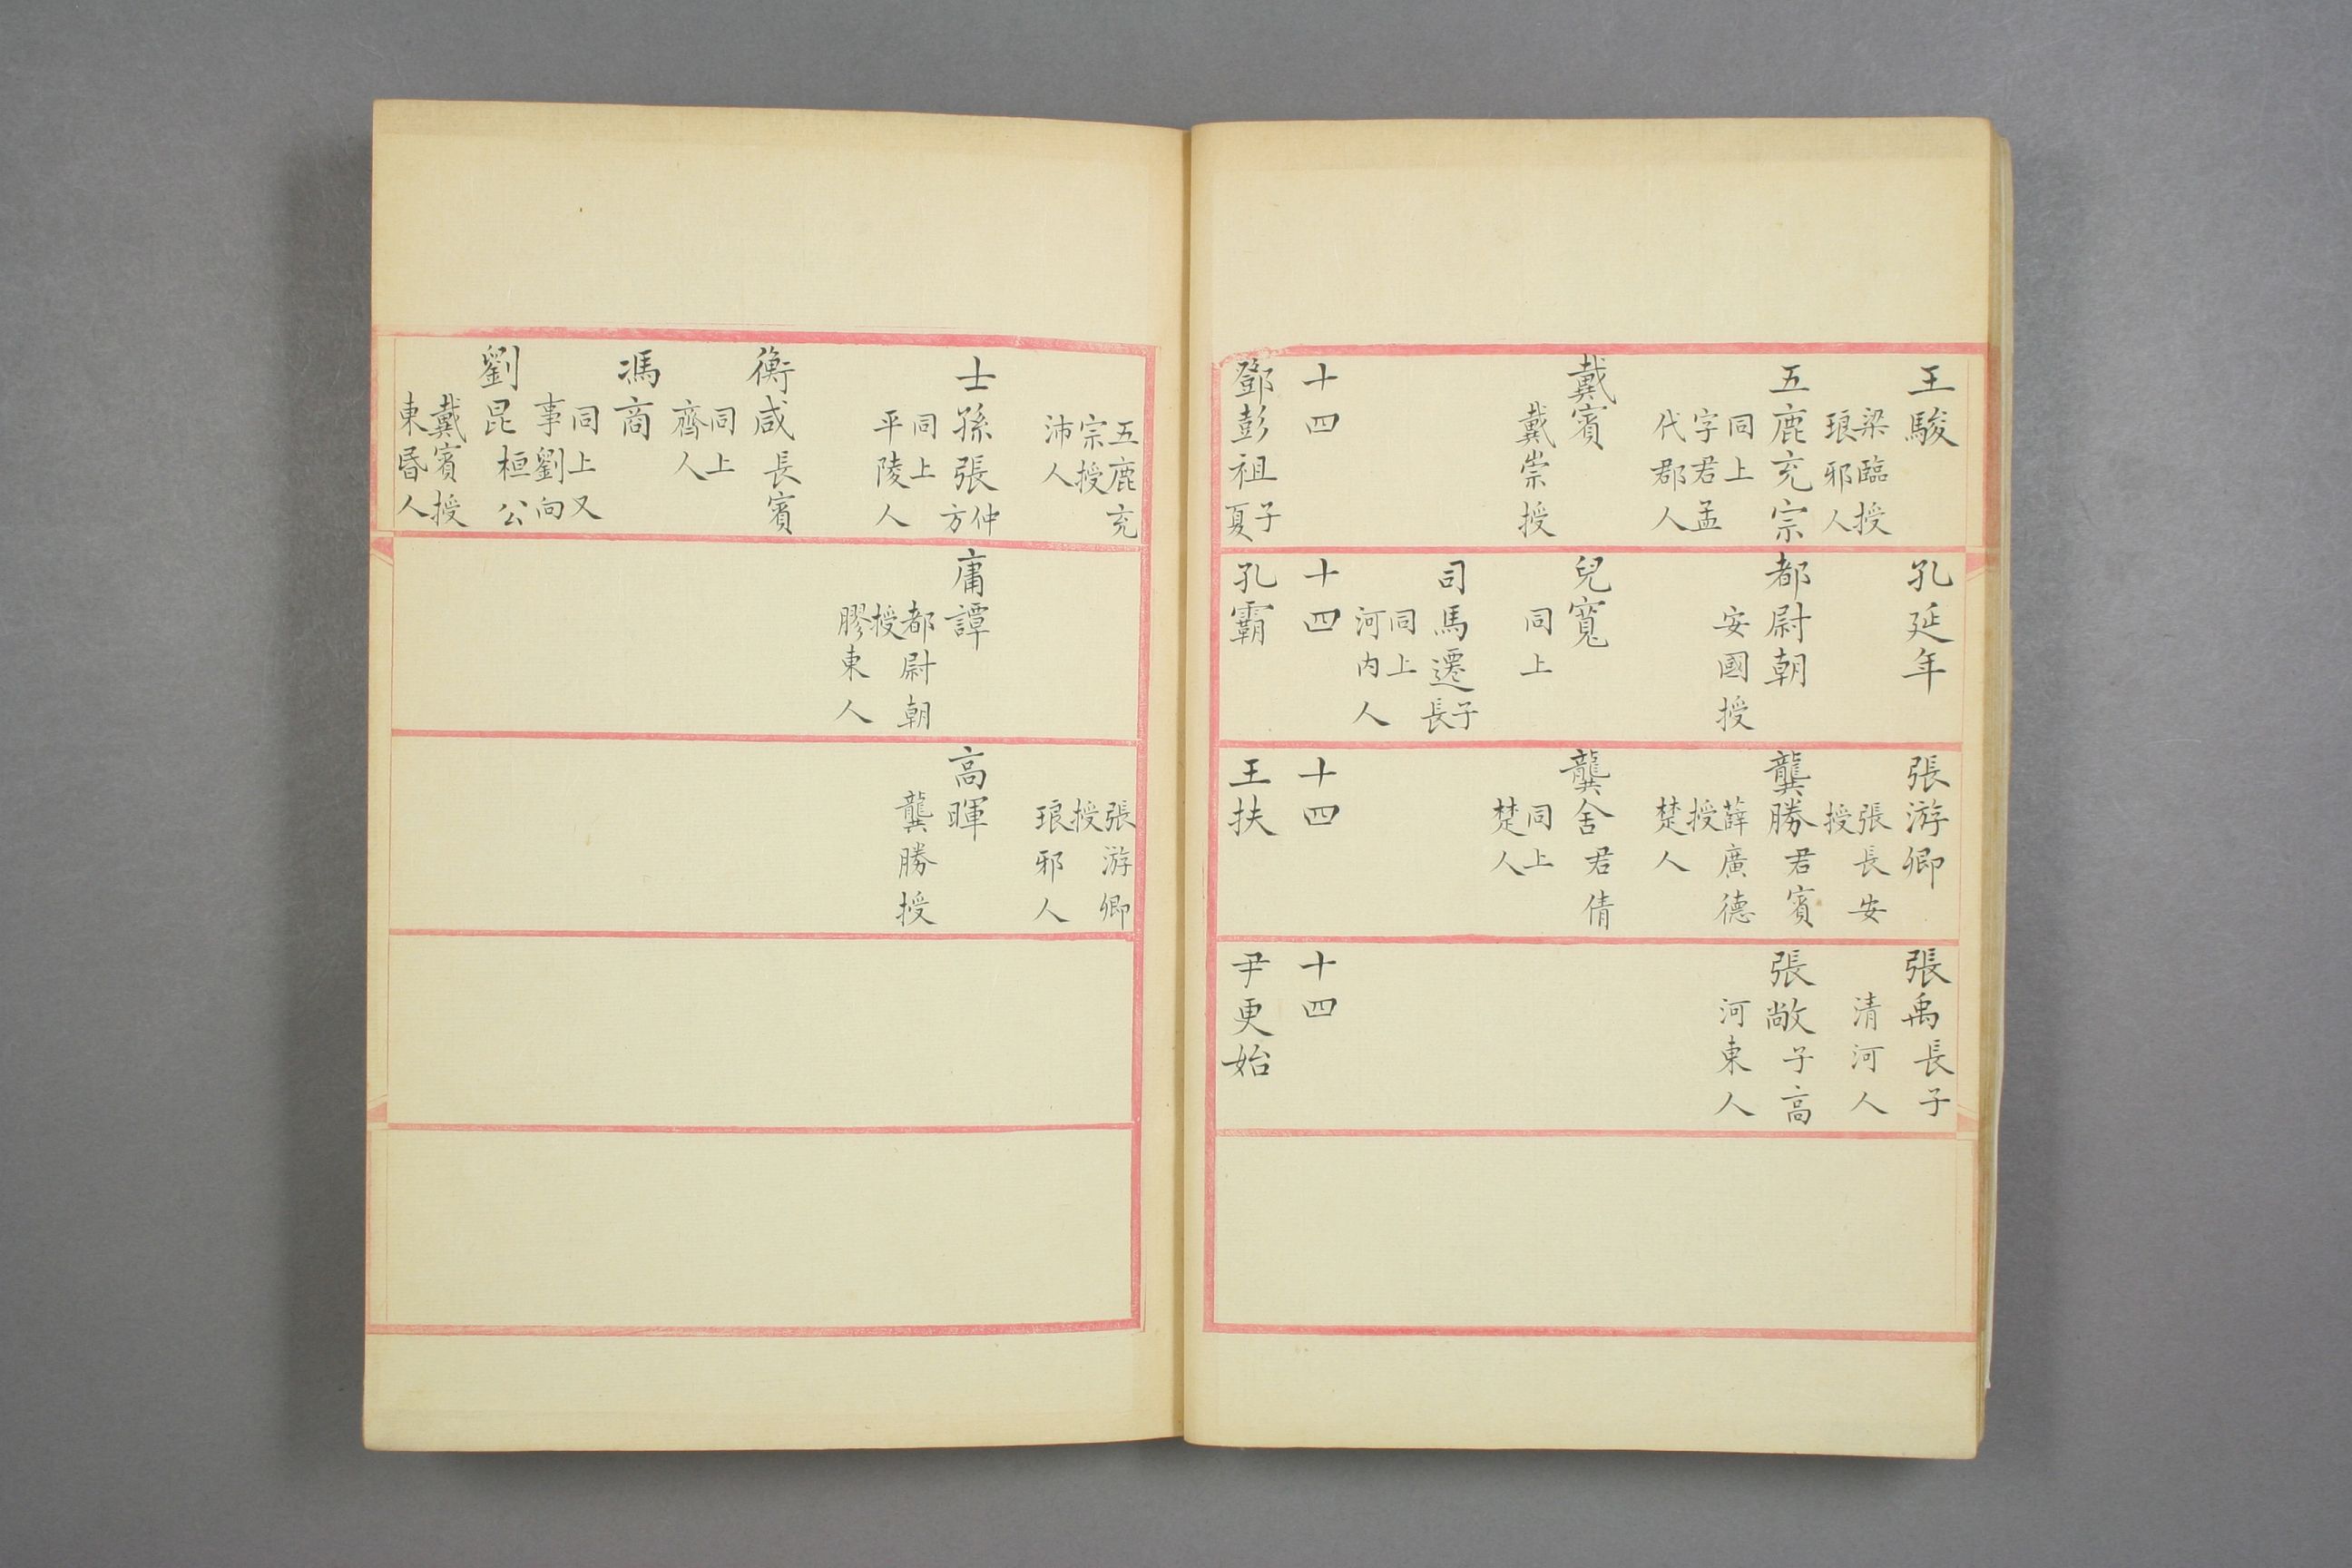 王駿
梁臨授
琅邪人
五鹿充宗
同上
字君孟
代郡人
戴賓
戴崇授
十四
鄧彭祖子夏
孔延年
都尉朝
安國授
兒寬
同上
司馬遷子長
同上
河内人
十四
孔霸
張游卿
張長安
授
龔勝君賓
薛廣德
授
楚人
龔舍君倩
同上
楚人
十四
王扶
張禹長子
清河人
張敞子高
河東人
十四
尹更始
五鹿充
宗授
沛人
士孫張仲方
同上
平陵人
衡咸長賓
同上
齊人
馮商
同上又
事劉向
劉昆桓公
戴賓授
東昬人
庸譚
都尉朝
授
膠東人
張游卿
授
琅邪人
高暉
龔勝授